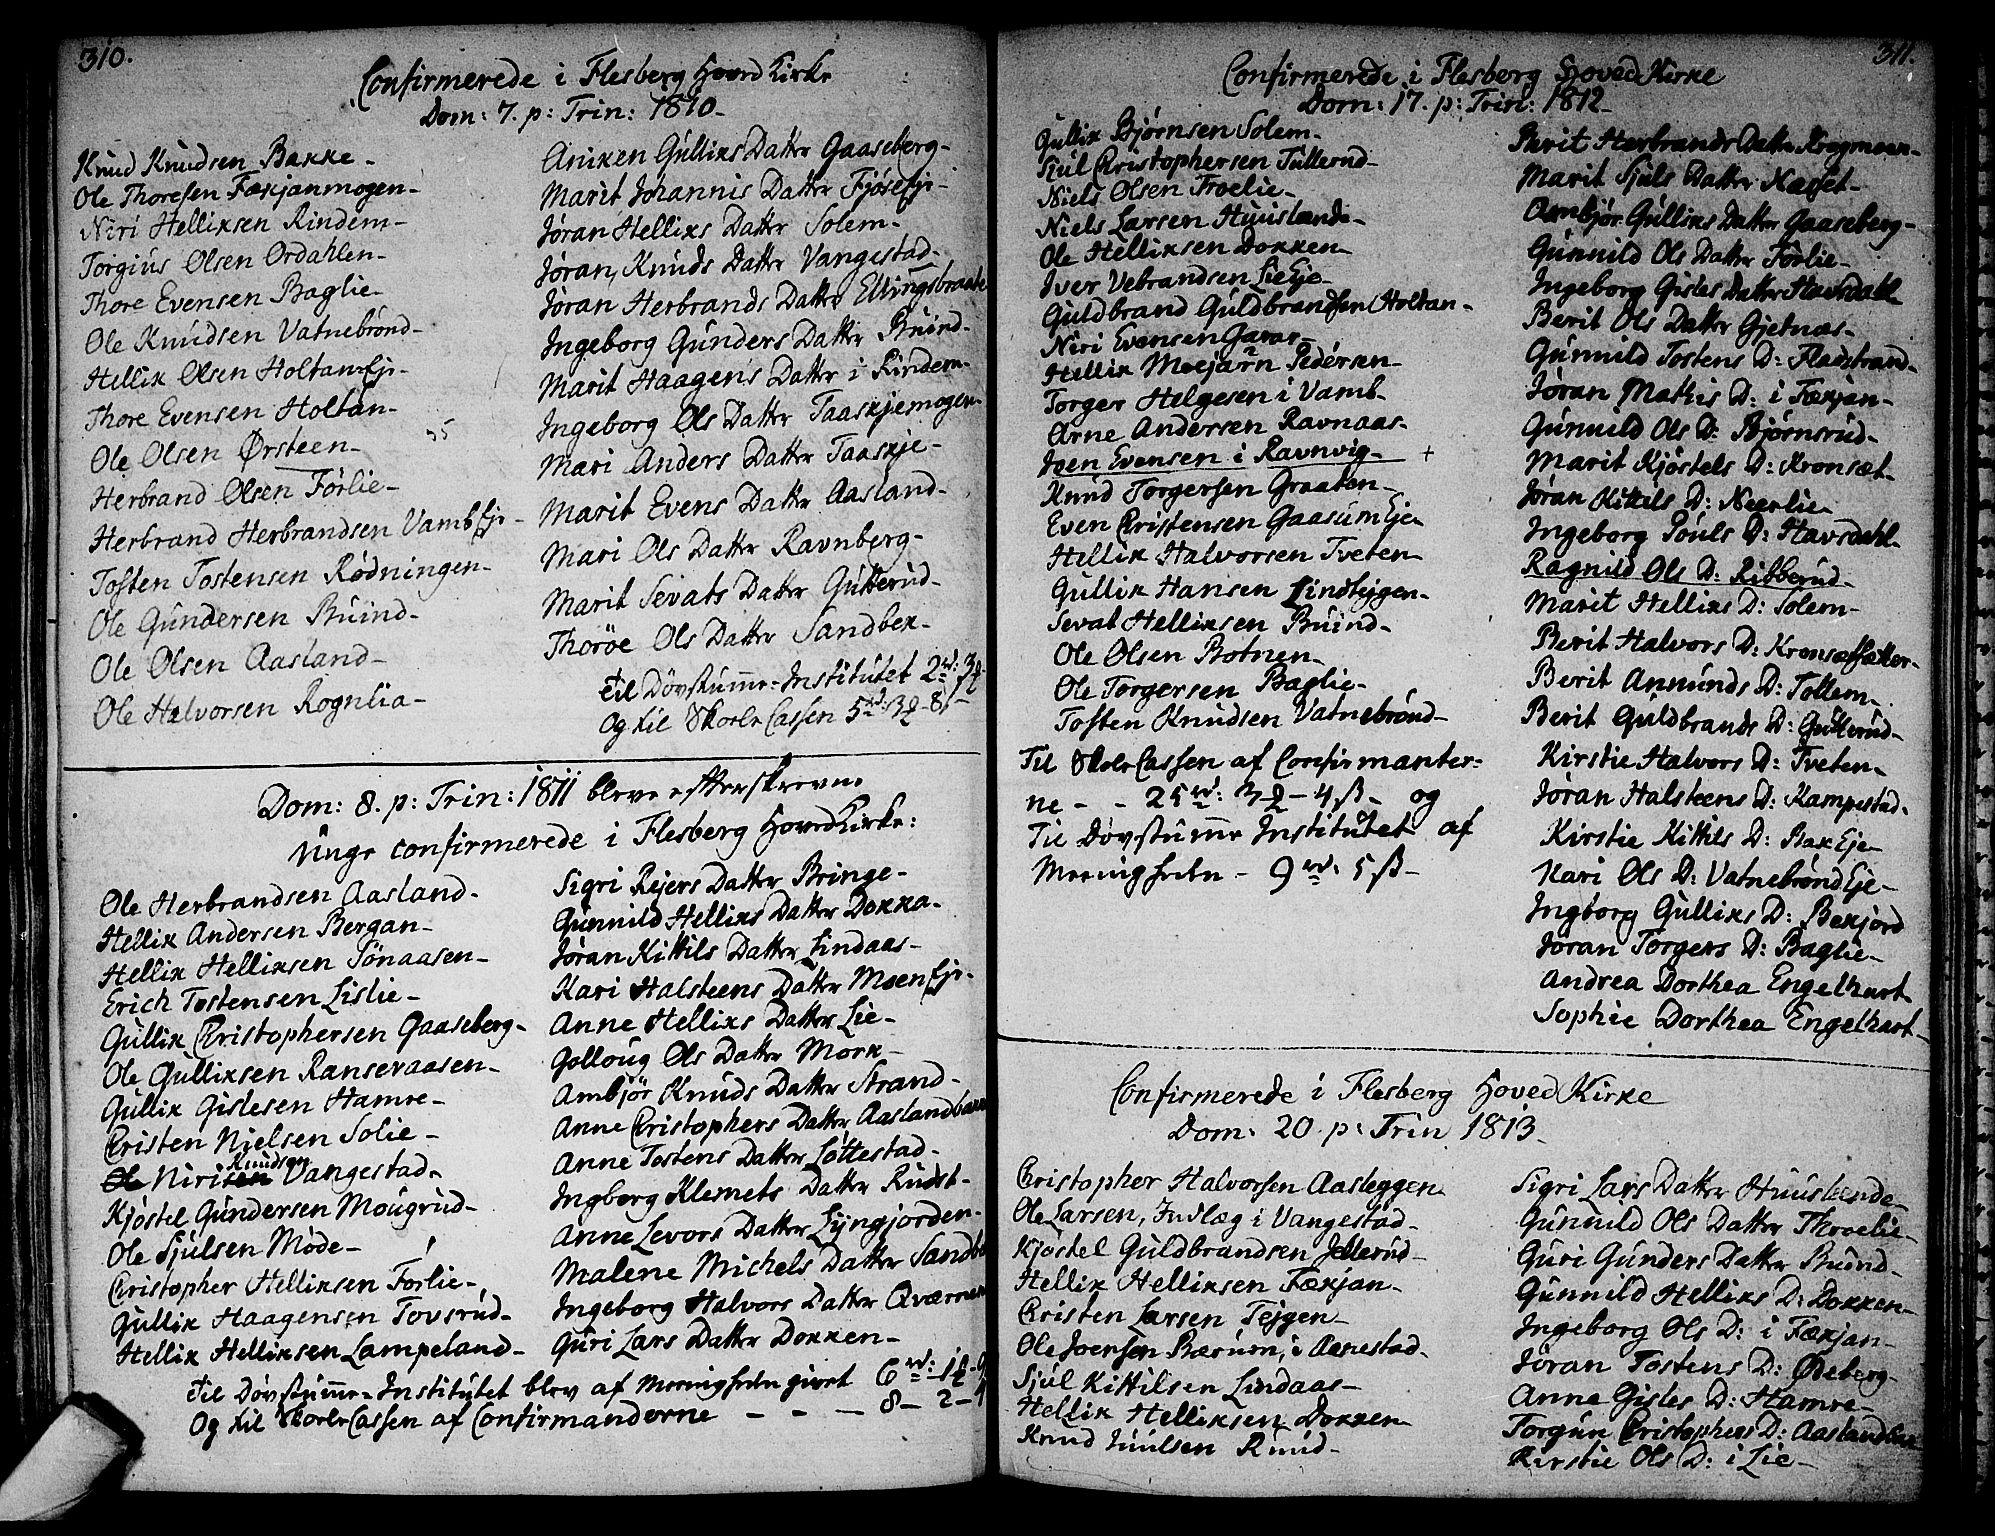 310.
Confirmerede i Flesberg Hoved Kirke
Dom: 7. p: Trin: 1810.
Knud Knudsen Bakke-
Ole Thoresen Fækjanmogen-
Niri Helliksen Rindem-
Torgius Olsen Ordahlen-
Thore Evensen Baglie-
Ole Knudsen Vatnebrønd-
Hellik Olsen Holtan Eje-
Thore Evensen Holtan-
Ole Olsen Ørsteen-
Herbrand Olsen Førlie-
Herbrand Herbrandsen Vamb Eje-
Tosten Tostensen Rødningen-
Ole Gundersen Bruind-
Ole Olsen Aasland-
Ole Halvorsen Rognlia-
Aniken Gulliks Datter Gaaseberg-
Marit Johannis Datter Fjøse Eje-
Jøran Helliks Datter Solem-
Jøran Knuds Datter Vangestad-
Jøran Herbrands Datter Ellingsbraate
Ingeborg Gunders Datter Bruind-
Marit Haagens Datter i Rindem-
Ingeborg Ols Datter Taaskjemogen-
Mari Anders Datter Taaskje-
Marit Evens Datter Aasland-
Mari Ols Datter Ravnberg-
Marit Sevats Datter Gutterud-
Thorøe Ols Datter Sandbek-
Til Døvstumme-Institutet 2 rd:
Og til Skole Cassen 5 rd: 3 - 8
Dom: 8. p: Trin: 1811 bleve efterskrevne
Unge confirmerede i Flesberg Hoved Kirke:
Ole Herbrandsen Aasland-
Hellik Andersen Bergan-
Hellik Helliksen Tønaasen-
Erich Tostensen Lislie-
Gullik Christophersen Gaaseberg-
Ole Gulliksen Ranseraasen-
Gullik Gislesen Hamre-
Christen Nielsen Solie-
Ole Nirisen Knudsen Vangestad-
Kjøstel Gundersen Mougrud-
Ole Sjulsen Møde-
Christopher Helliksen Førlie-
Gullik Haagensen Tovsrud-
Hellik Helliksen Lampeland-
Sigri Rejers Datter Bringe-
Gunnild Helliks Datter Dokka-
Jøran Kittils Datter Lindaas-
Kari Halsteens Datter Moen Eje-
Anne Helliks Datter Lie-
Golloug Ols Datter Mork-
Ambjør Knuds Datter Strand-
Anne Christophers Datter
Anne Tostens Datter Løttestad-
Ingborg Klemets Datter Rudst-
Anne Levors Datter Lyngjorden-
Malene Michels Datter
Ingeborg Halvors Datter
Guri Lars Datter Dokken-
Til Døvstumme-Institutet blev af Meenigheden givet 6 rd: 1
Og til Skole Cassen af Confirmanderne - - - 8- 2-
311.
Confirmerede i Flesberg Hoved Kirke
Dom: 17. p: Trin: 1812-
Gullik Bjørnsen Solem-
Sjul Christophersen Tullerud-
Niels Olsen Froelie-
Niels Larsen Huuslænde-
Ole Helliksen Dokken-
Iver Vebrandsen Lie Eje-
Guldbrand Guldbrandsen Holtan-
Niri Evensen Gavar-
Hellik Moejarn Pedersen-
Torger Helgesen i Vamb-
Arne Andersen Ravnaas-
Joen Evensen i Ravnvig- +
Knud Torgersen Graaten-
Even Christensen Gaasum Eje-
Hellik Halvorsen Tveten-
Gullik Hansen Lindtejgen-
Sevat Helliksen Bruind-
Ole Olsen Botnen-
Ole Torgersen Baglie-
Tosten Knudsen Vatnebrønd-
Til Skole Cassen af Confirmanter-
ne - - 25 rd: 3 - 4 ß- og
Til Døvstumme Institutet af
Meenigheden - 9 rd: 5 ß-
Berit Herbrands Datter
Marit Sjuls Datter Næsset-
Ambjør Gulliks Datter Gaaseberg-
Gunnild Ols Datter Førlie-
Ingeborg Gisles Datter Havsdahl-
Berit Ols Datter Gjetnæs-
Gunnild Tostens D: Fladstrand-
Jøran Mathis D: i Fækjan-
Gunnild Ols D: Bjørnsrud-
Marit Kjøstels D: Kronsæt-
Jøran Kittils D: Neerlie-
Ingeborg Pouls D: Havsdahl-
Ragnild Ols D: Ribberud-
Marit Helliks D: Solem-
Berit Halvors D:
Berit Annunds D: Tollem-
Berit Guldbrands D: Gutterud-
Kirstie Halvors D: Tveten-
Jøran Halsteens D: Kampestad-
Kirstie Kittils D: Bak Eje-
Kari Ols D: Vatnebrønd Eje-
Ingborg Gulliks D: Bekjord
Jøran Torgers D: Baglie-
Andrea Dorthea Engelhart-
Sophie Dorthea Engelhart-
Confirmerede i Flesberg Hoved Kirke
Dom: 20. p: Trin 1813.
Christopher Halvorsen Aasleggen-
Ole Larsen, Indlæg i Vangestad-
Kjøstel Guldbrandsen Jellerud-
Hellik Helliksen Fækjan-
Christen Larsen Tejgen-
Ole Joensen Bærum, i Aanestad-
Sjul Kittilsen Lindaas-
Hellik Helliksen Dokken-
Knud Juulsen Ruud-
Sigri Lars Datter Huuslænde-
Gunnild Ols Datter Throelie-
Guri Gunders Datter Bruind-
Gunnild Helliks D: Dokken-
Ingeborg Ols D: i Fækjan-
Jøran Tostens D: Ødeberg-
Anne Gisles D: Hamre-
Torgun Christophers D:
Kirstie Ols D: i Lie-